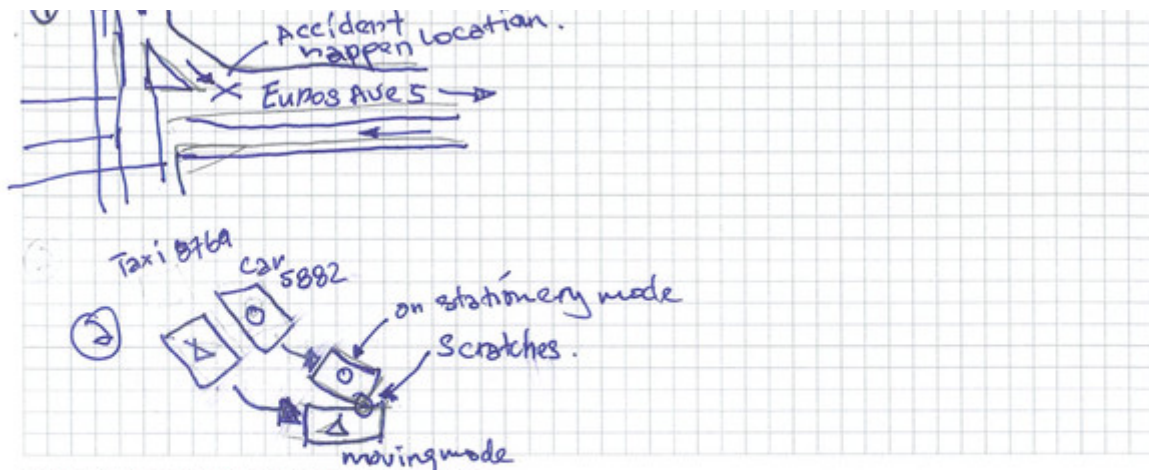 ①
Accident
happen Location.
Eunos Ave 5
Taxi 8769
Car
5882
②
on stationery mode
Scratches.
moving mode